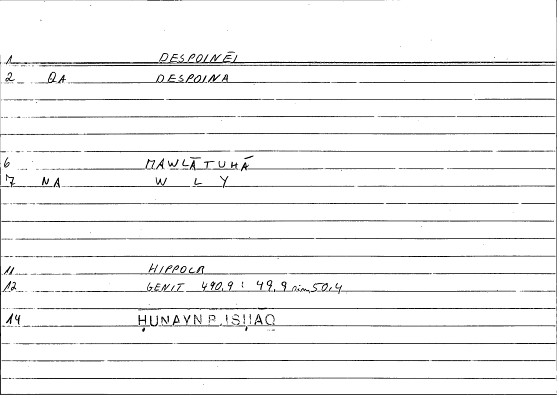 1 DESPOINĒI
2 QA DESPOINA
6 MAWLĀTUHĀ
7 NA W L Y
11 HIPPOCR
12 GENIT 490,9 : 49,9 50,4
14 ḤUNAYN B. ISḤĀQ